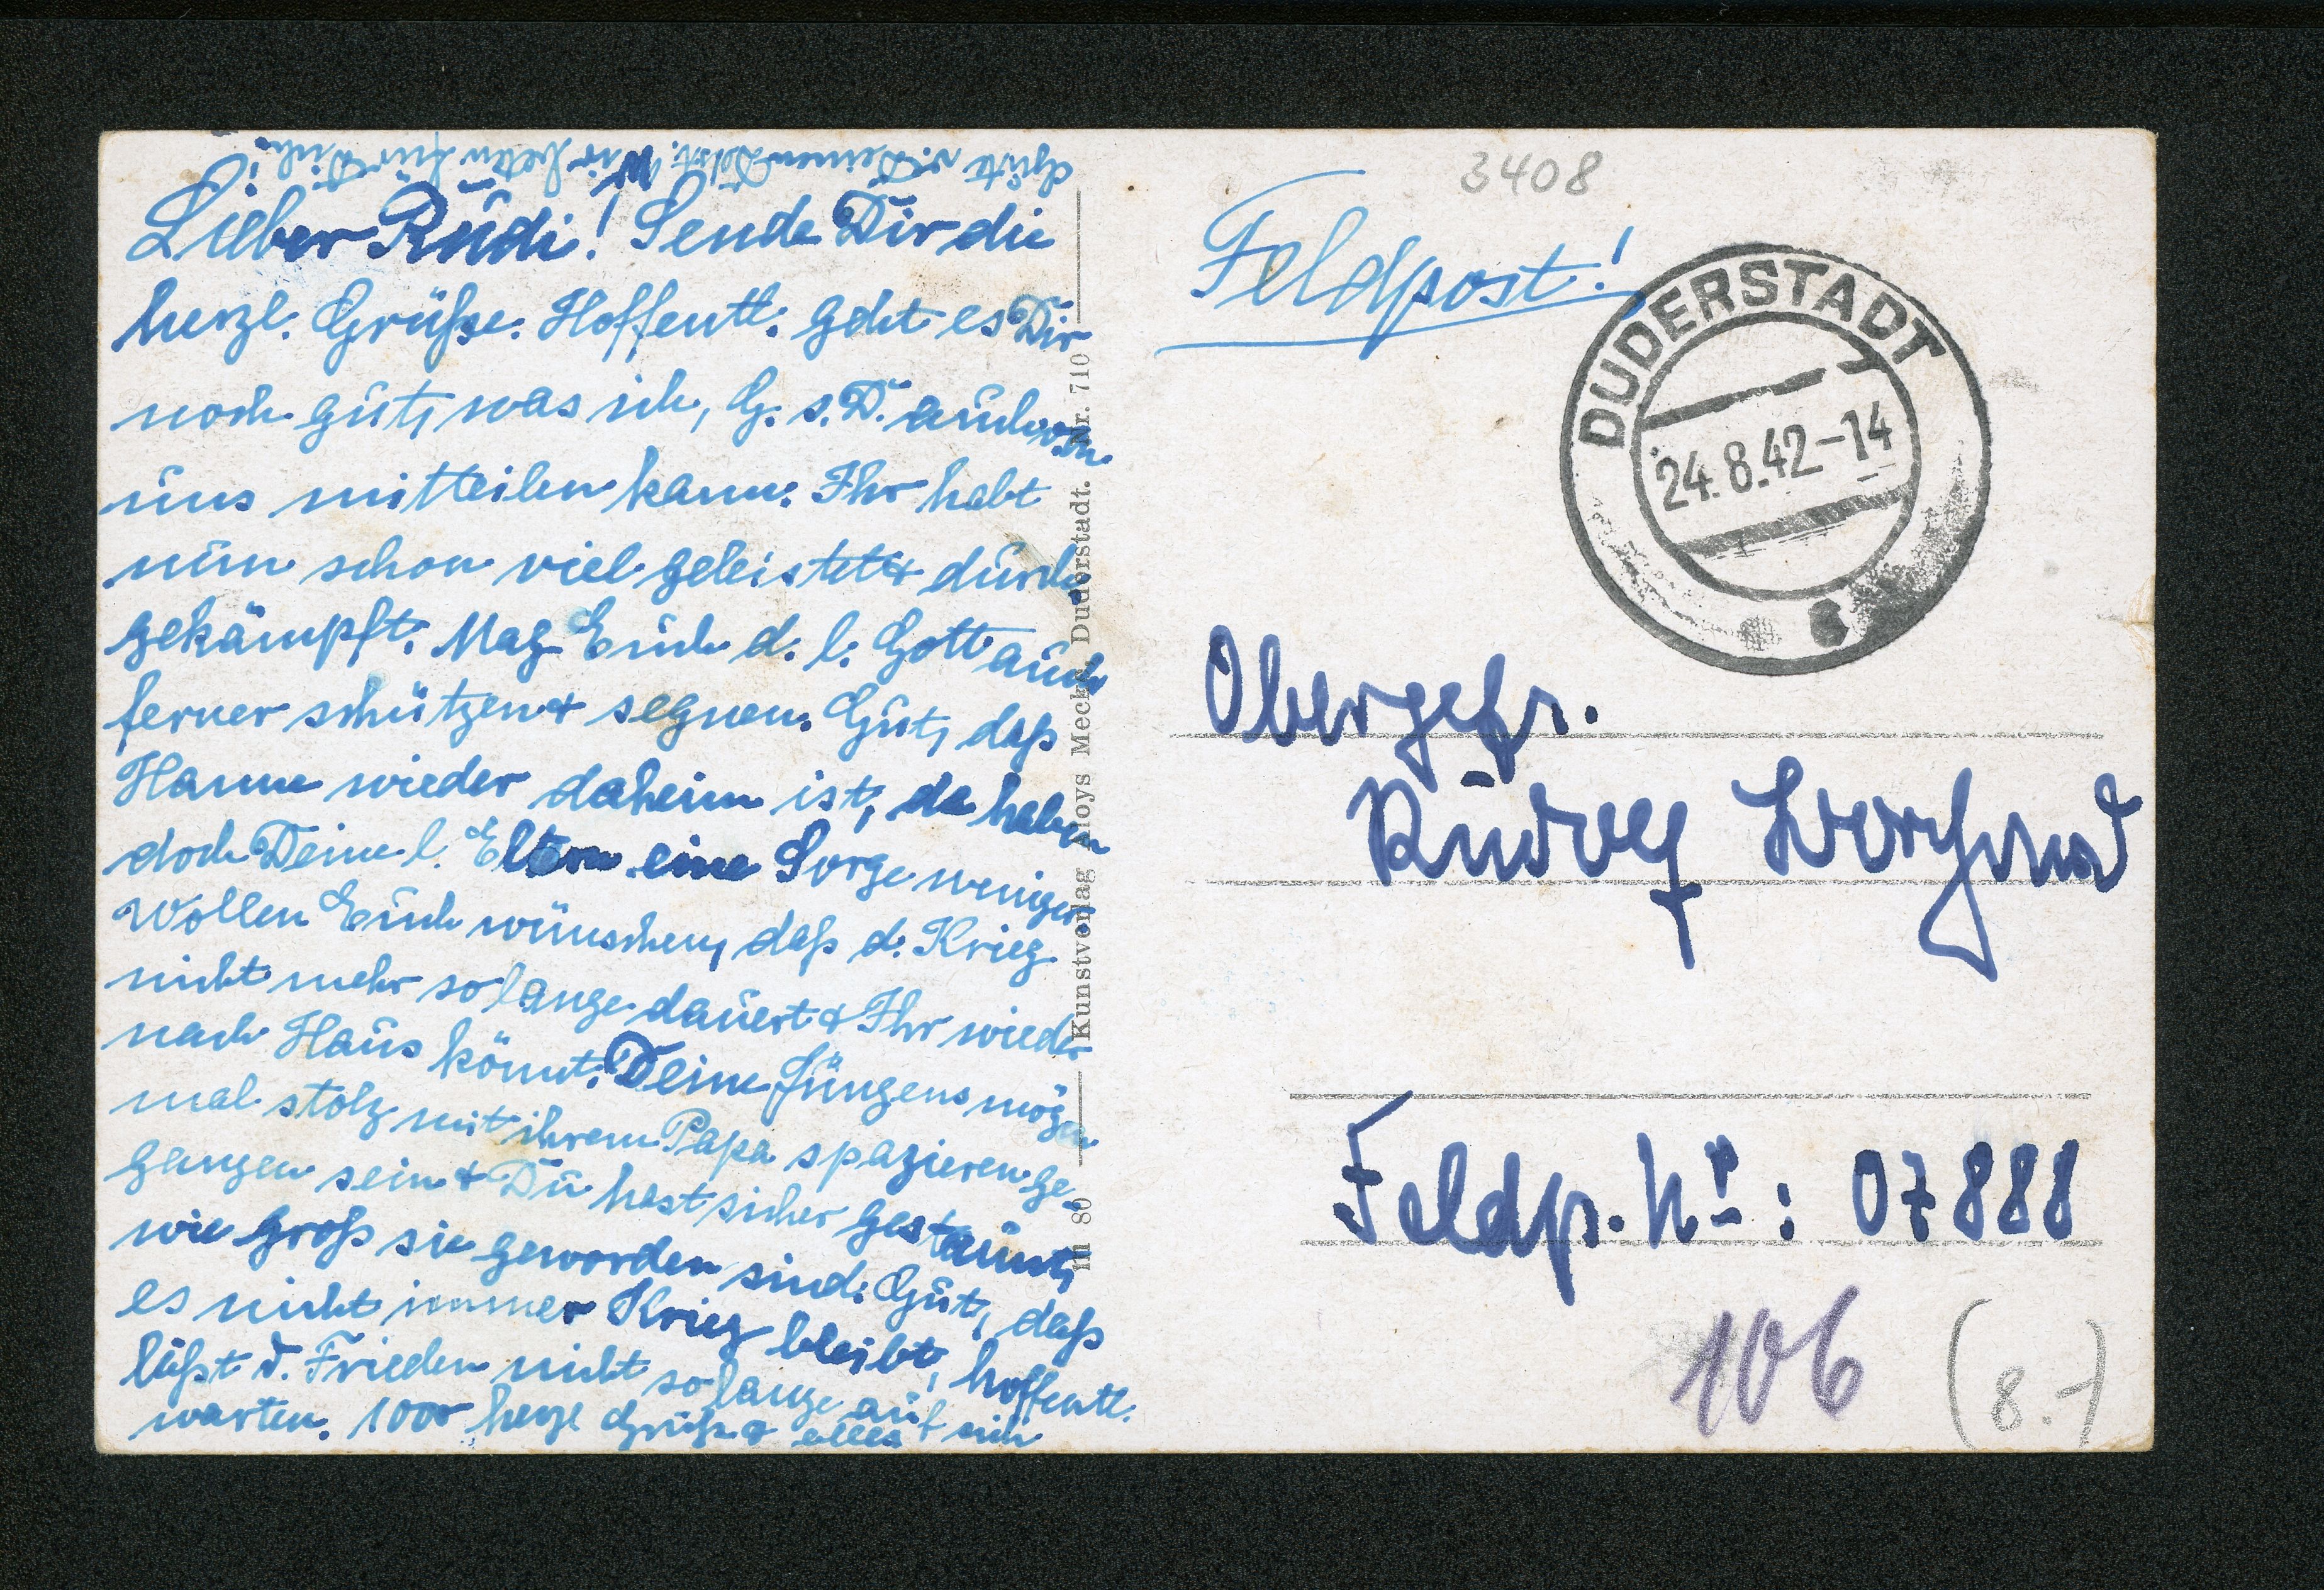 Lieber Rudi! Sende Dir die
herzl. Grüße. Hoffentl. geht es Dir
noch gut, was ich, G. s. D. auch von
uns mitteilen kann. Ihr habt
nun schon viel geleistet & durch
gekämpft. Mag Euch d. l. Gott auch
ferner schützen & segnen. Gut, daß
Hanne wieder daheim ist, da haben
doch Deine l. Eltern eine Sorge weniger.
Wollen Euch wünschen, daß d. Krieg
nicht mehr so lange dauert & Ihr wieder
nach Haus könnt. Deine Jungens mögen
mal stolz mit ihrem Papa spazieren ge-
gangen sein & Du hast sicher gestaunt,
wie groß sie geworden sind. Gut, daß
es nicht immer Krieg bleibt, hoffentl.
läßt d. Frieden nicht so lange auf sich
warten. 1000 herzl Grüße & alles
Gute v. Deinem Wir beten für Dich!
m 80 Kunstverlag Aloys Mecke, Duderstadt. Nr. 710
3408
Feldpost!
DUDERSTADT
24.8.42-14
Obergefr.
Rudolf
Feldp. No: 07888
106
(8.-)